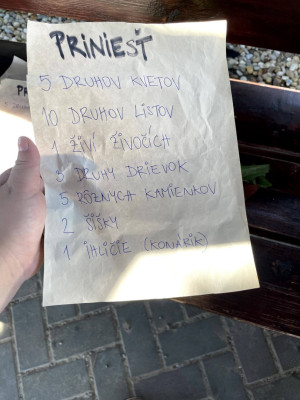 PRINIESŤ
5 DRUHOV KVETOV
10 DRUHOV LISTOV
1 ŽIVÍ ŽIVOČÍCH
3 DRUHY DRIEVOK
5 RÔZNYCH KAMIENKOV
2 ŠIŠKY
1 IHLIČIE (KONÁRIK)